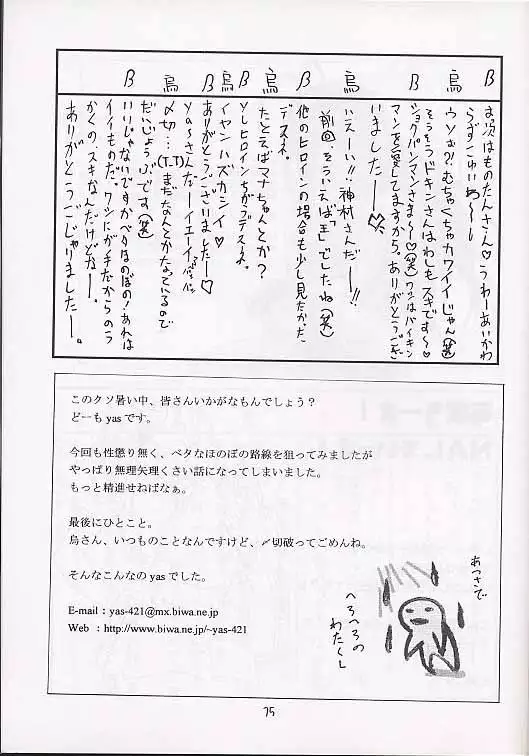 β お次はものたんさん♡うわーあいかわ
らずすごいわぁ〜し
烏 ウソぉ?むちゃくちゃカワイイじゃん(笑)
そうそうドキンさんはわしもスキです〜♡
ショクパンマンさま〜♡(笑)ワシはバイキン
マンを愛してますから。ありがとうござ
いました―♡
烏 いえーい!!神村さんだー!!
前回、そういえば「王」でしたね(笑)
β 他のヒロインの場合も少し見たかった
デスネ。
烏 たとえばマナちゃんとか?
β ソレヒロインちがうデスネ。
烏 イヤンハズカシイ
β ありがとうございましたー♡
yaSさんだーイエーイ
烏 〆切…(T.T)まだなんとかなってるので
だいじょうぶです(笑)
β いいじゃないですかベタなほのぼの!あれは
イイものだ。ワシにガ手だからのう
かくの、スキなんだけどなー。
ありがとうごじゃりましたー。
このクソ暑い中、皆さんいかがなもんでしょう?
どーもyasです。
今回も性懲り無く、ベタなほのぼの路線を狙ってみましたが
やっぱり無理矢理くさい話になってしまいました。
もっと精進せねばなぁ。
最後にひとこと。
烏さん、いつものことなんですけど、〆切破ってごめんね。
そんなこんなのyasでした。
E-mail : yas-421@mx.biwa.ne.jp
Web : http://www.biwa.ne.jp/~yas-421
あつさで
へろへろの
わたくし
75